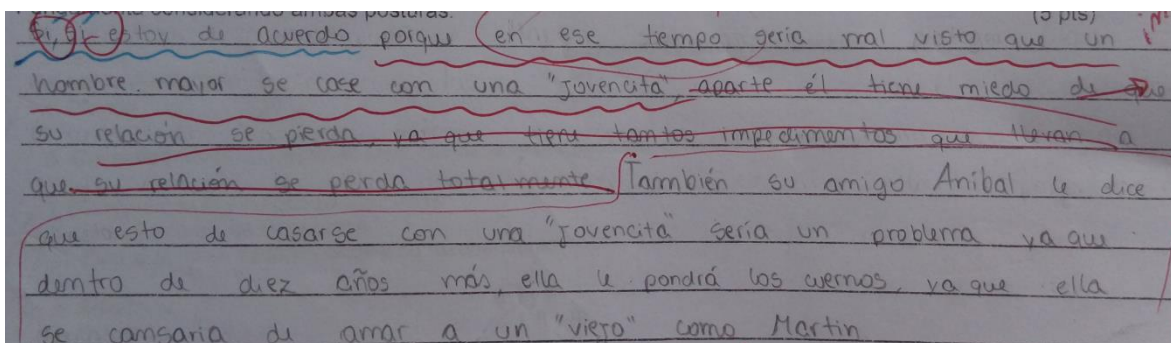 considerando ambas posturas. (5 pts)
Si, si estoy de acuerdo porque en ese tiempo seria mal visto que un
hombre mayor se case con una "Jovencita", aparte él tiene miedo de que
su relación se pierda, ya que tiene tantos impedimentos que llevan a
que su relación se perda totalmente. También su amigo Anibal le dice
que esto de casarse con una "Jovencita" sería un problema ya que
dentro de diez años más, ella le pondrá los cuernos, ya que ella
se cansaria de amar a un "viejo" como Martin